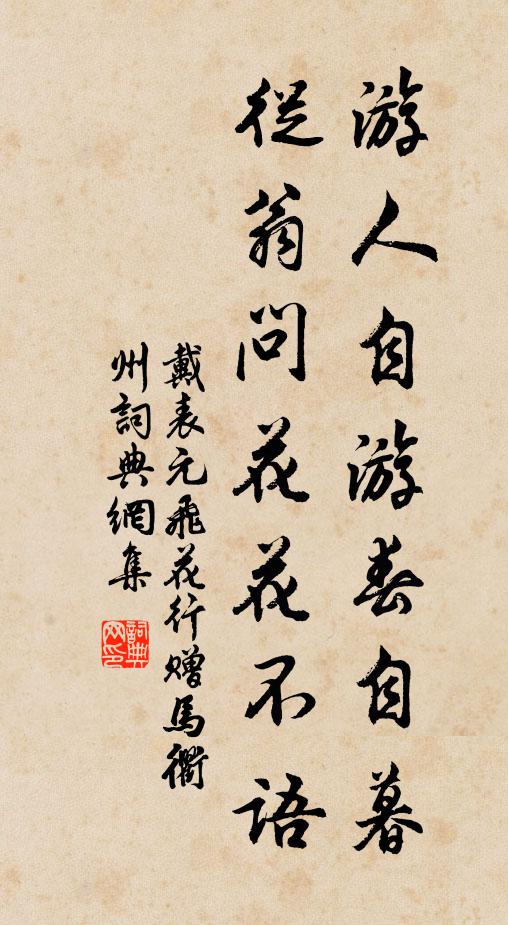 游人自游春自暮
從翁問花花不語
戴表元飛花行贈馬衢
州詞典網集
詞典
网印